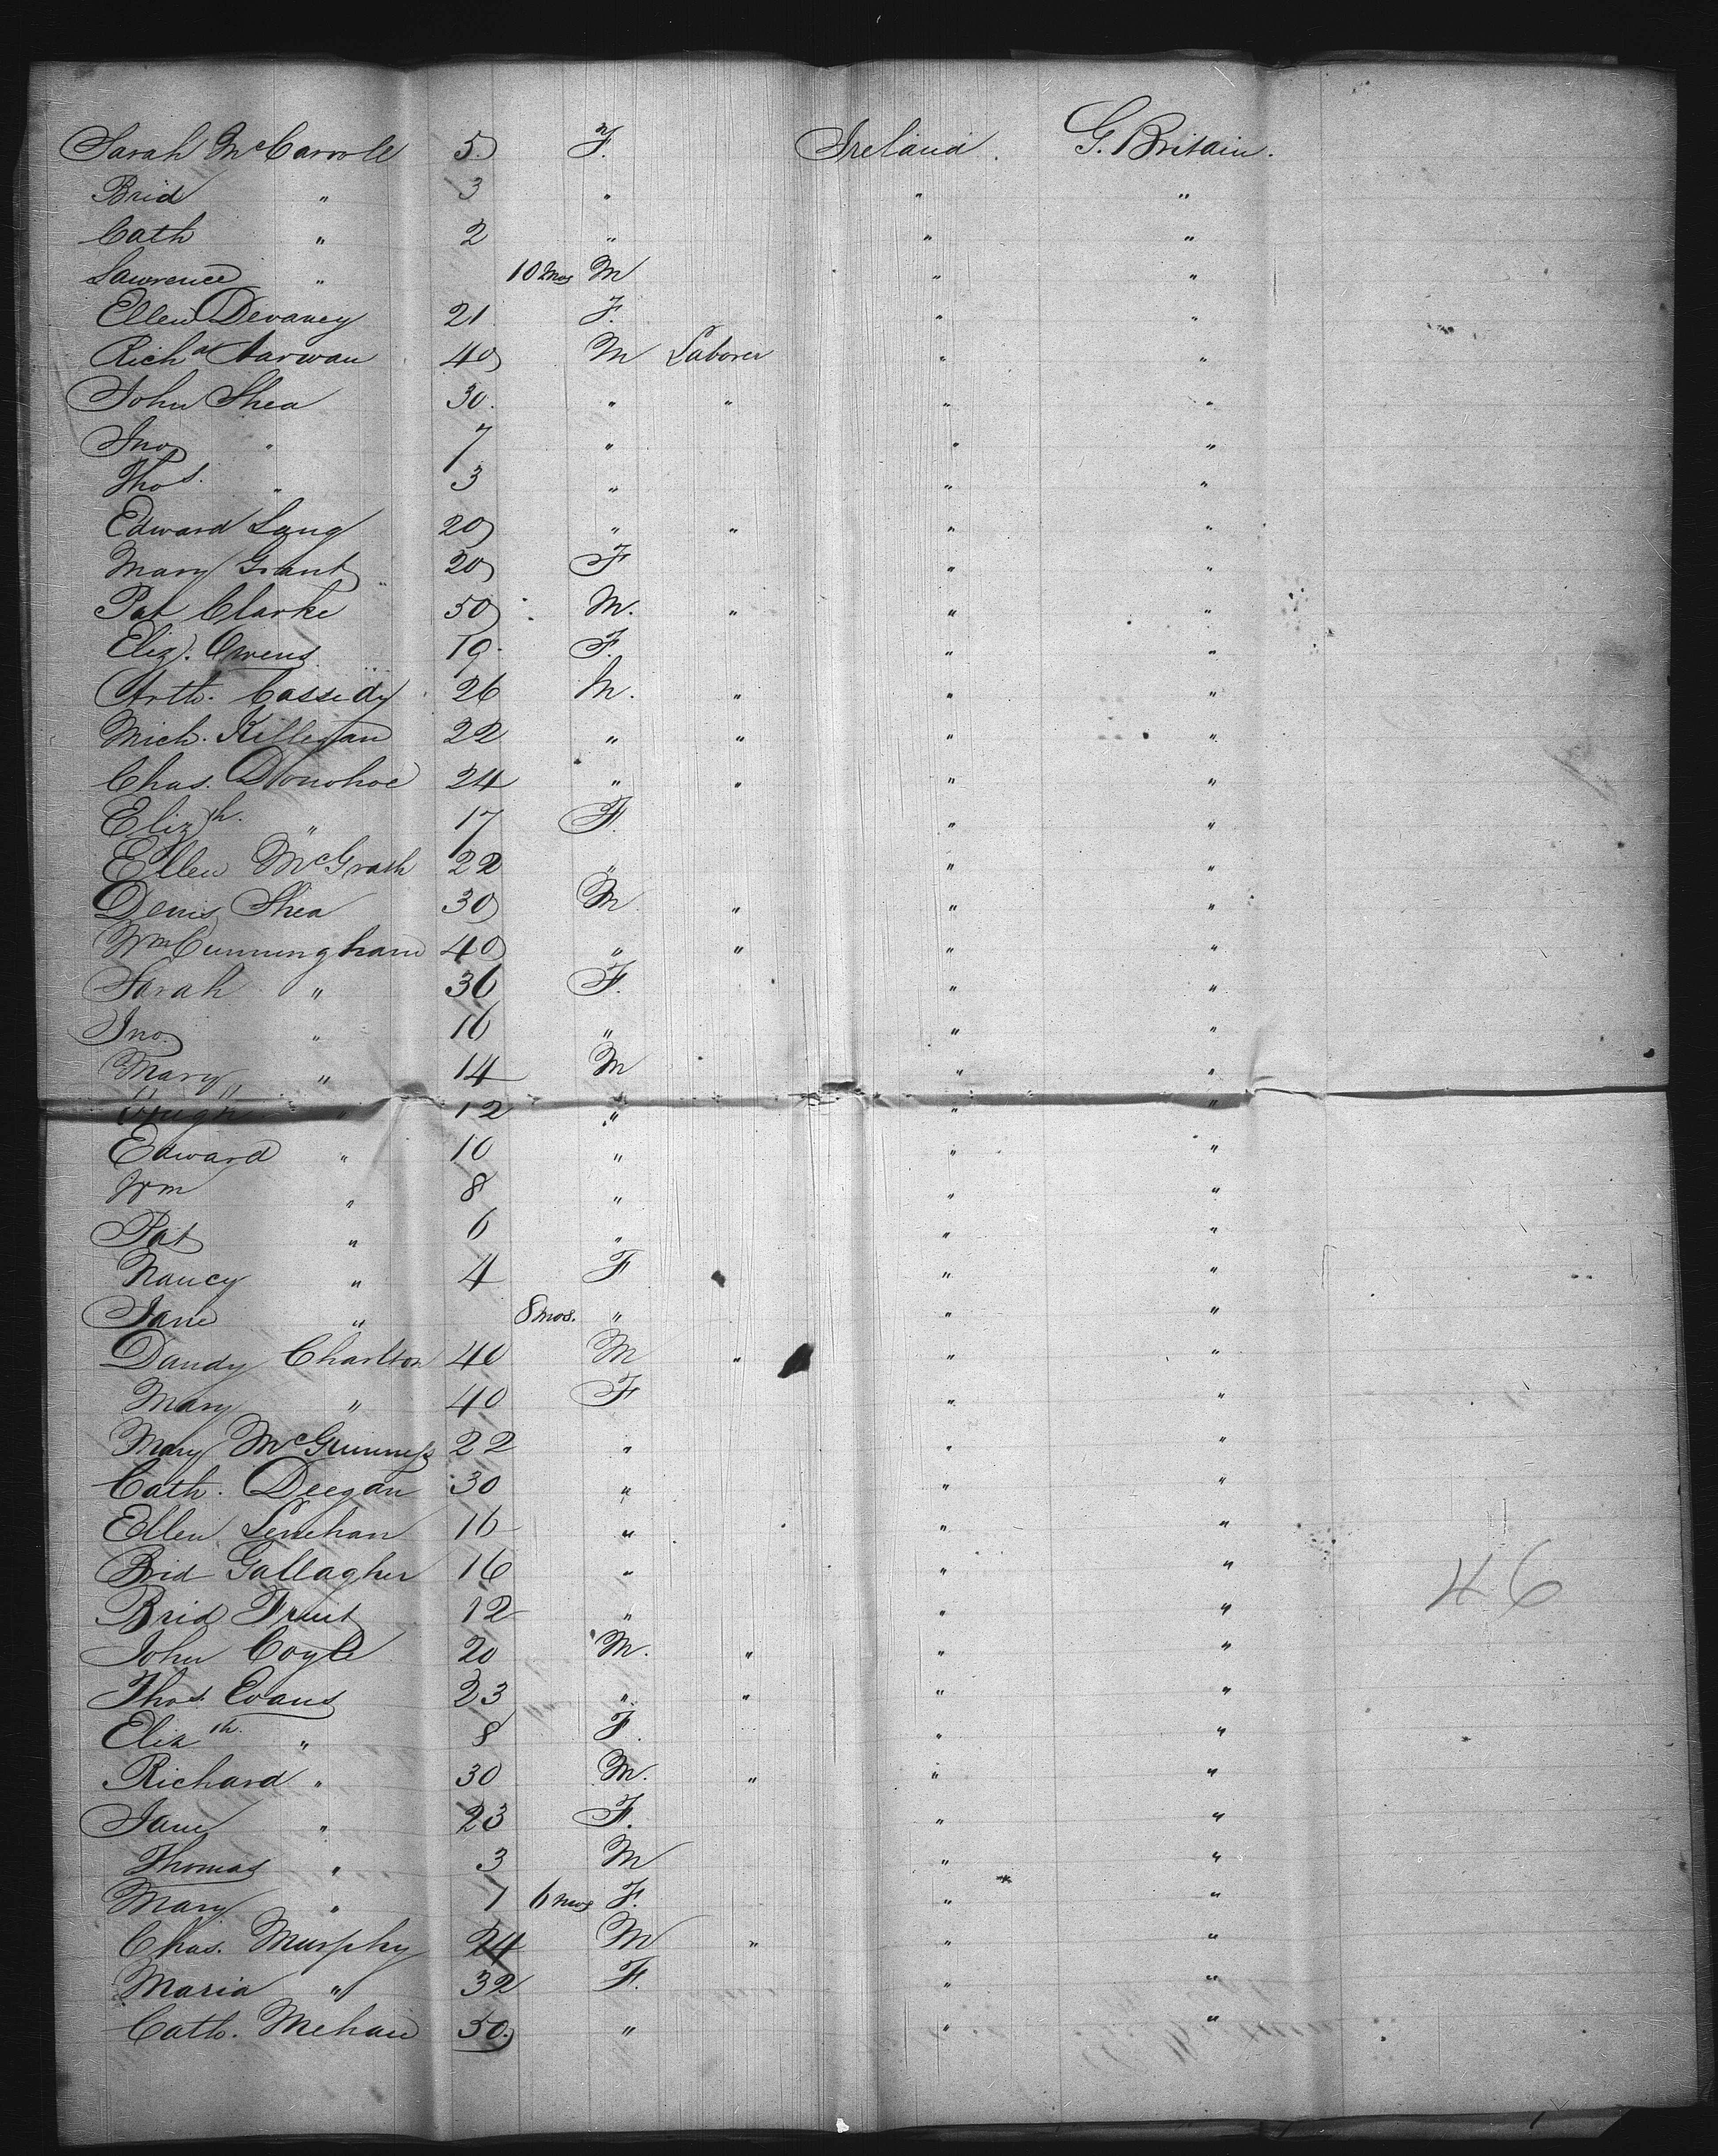 Sarah McCarroll 5 F. Ireland. G. Britain.
Brid " 3 " " "
Cath " 2 " " "
Lawrence " 10 mos M " "
Ellen Devaney 21 F. " "
Richd 40 M Laborer " "
John Shea 30. " " " "
Jno " 7 " " "
Thos. " 3 " " "
Edward Lang 20 " " " "
Mary Grant 20 F " "
Pat Clarke 50 M. " " "
Eliz. Owens 19. F. " "
Arth. Cassidy 26 M. " " "
Mich. Killegan 22 " " " "
Chas. Donohoe 24 " " " "
Elizth. " 17 F. " "
Ellen McGrath 22 " " "
Denis Shea 30 M " " "
Wm Cunningham 40 " " " "
Sarah " 36 F. " "
Jno. " 16 " " "
Mary " 14 M " "
Hugh " 12 " " "
Edward " 10 " " "
Wm " 8 " " "
Pat " 6 " " "
Nancy " 4 F " "
Jane " 8 mos. " " "
Dandy Charlton 40 M " " "
Mary " 40 F " "
Mary McGuinness 22 " " "
Cath. Deegan 30 " " "
Ellen Lenehan 16 " " "
Brid Gallagher 16 " " "
46
Brid 12 " " "
John Coyle 20 M. " " "
Thos. Evans 23 " " " "
Elizth. " 8 F. " "
Richard " 30 M. " " "
Jane " 23 F. " "
Thomas " 3 M " "
Mary " 1 6 mos F. " "
Chas. Murphy 24 M " " "
Maria " 32 F. " "
Cath. Mehan 50. " " "